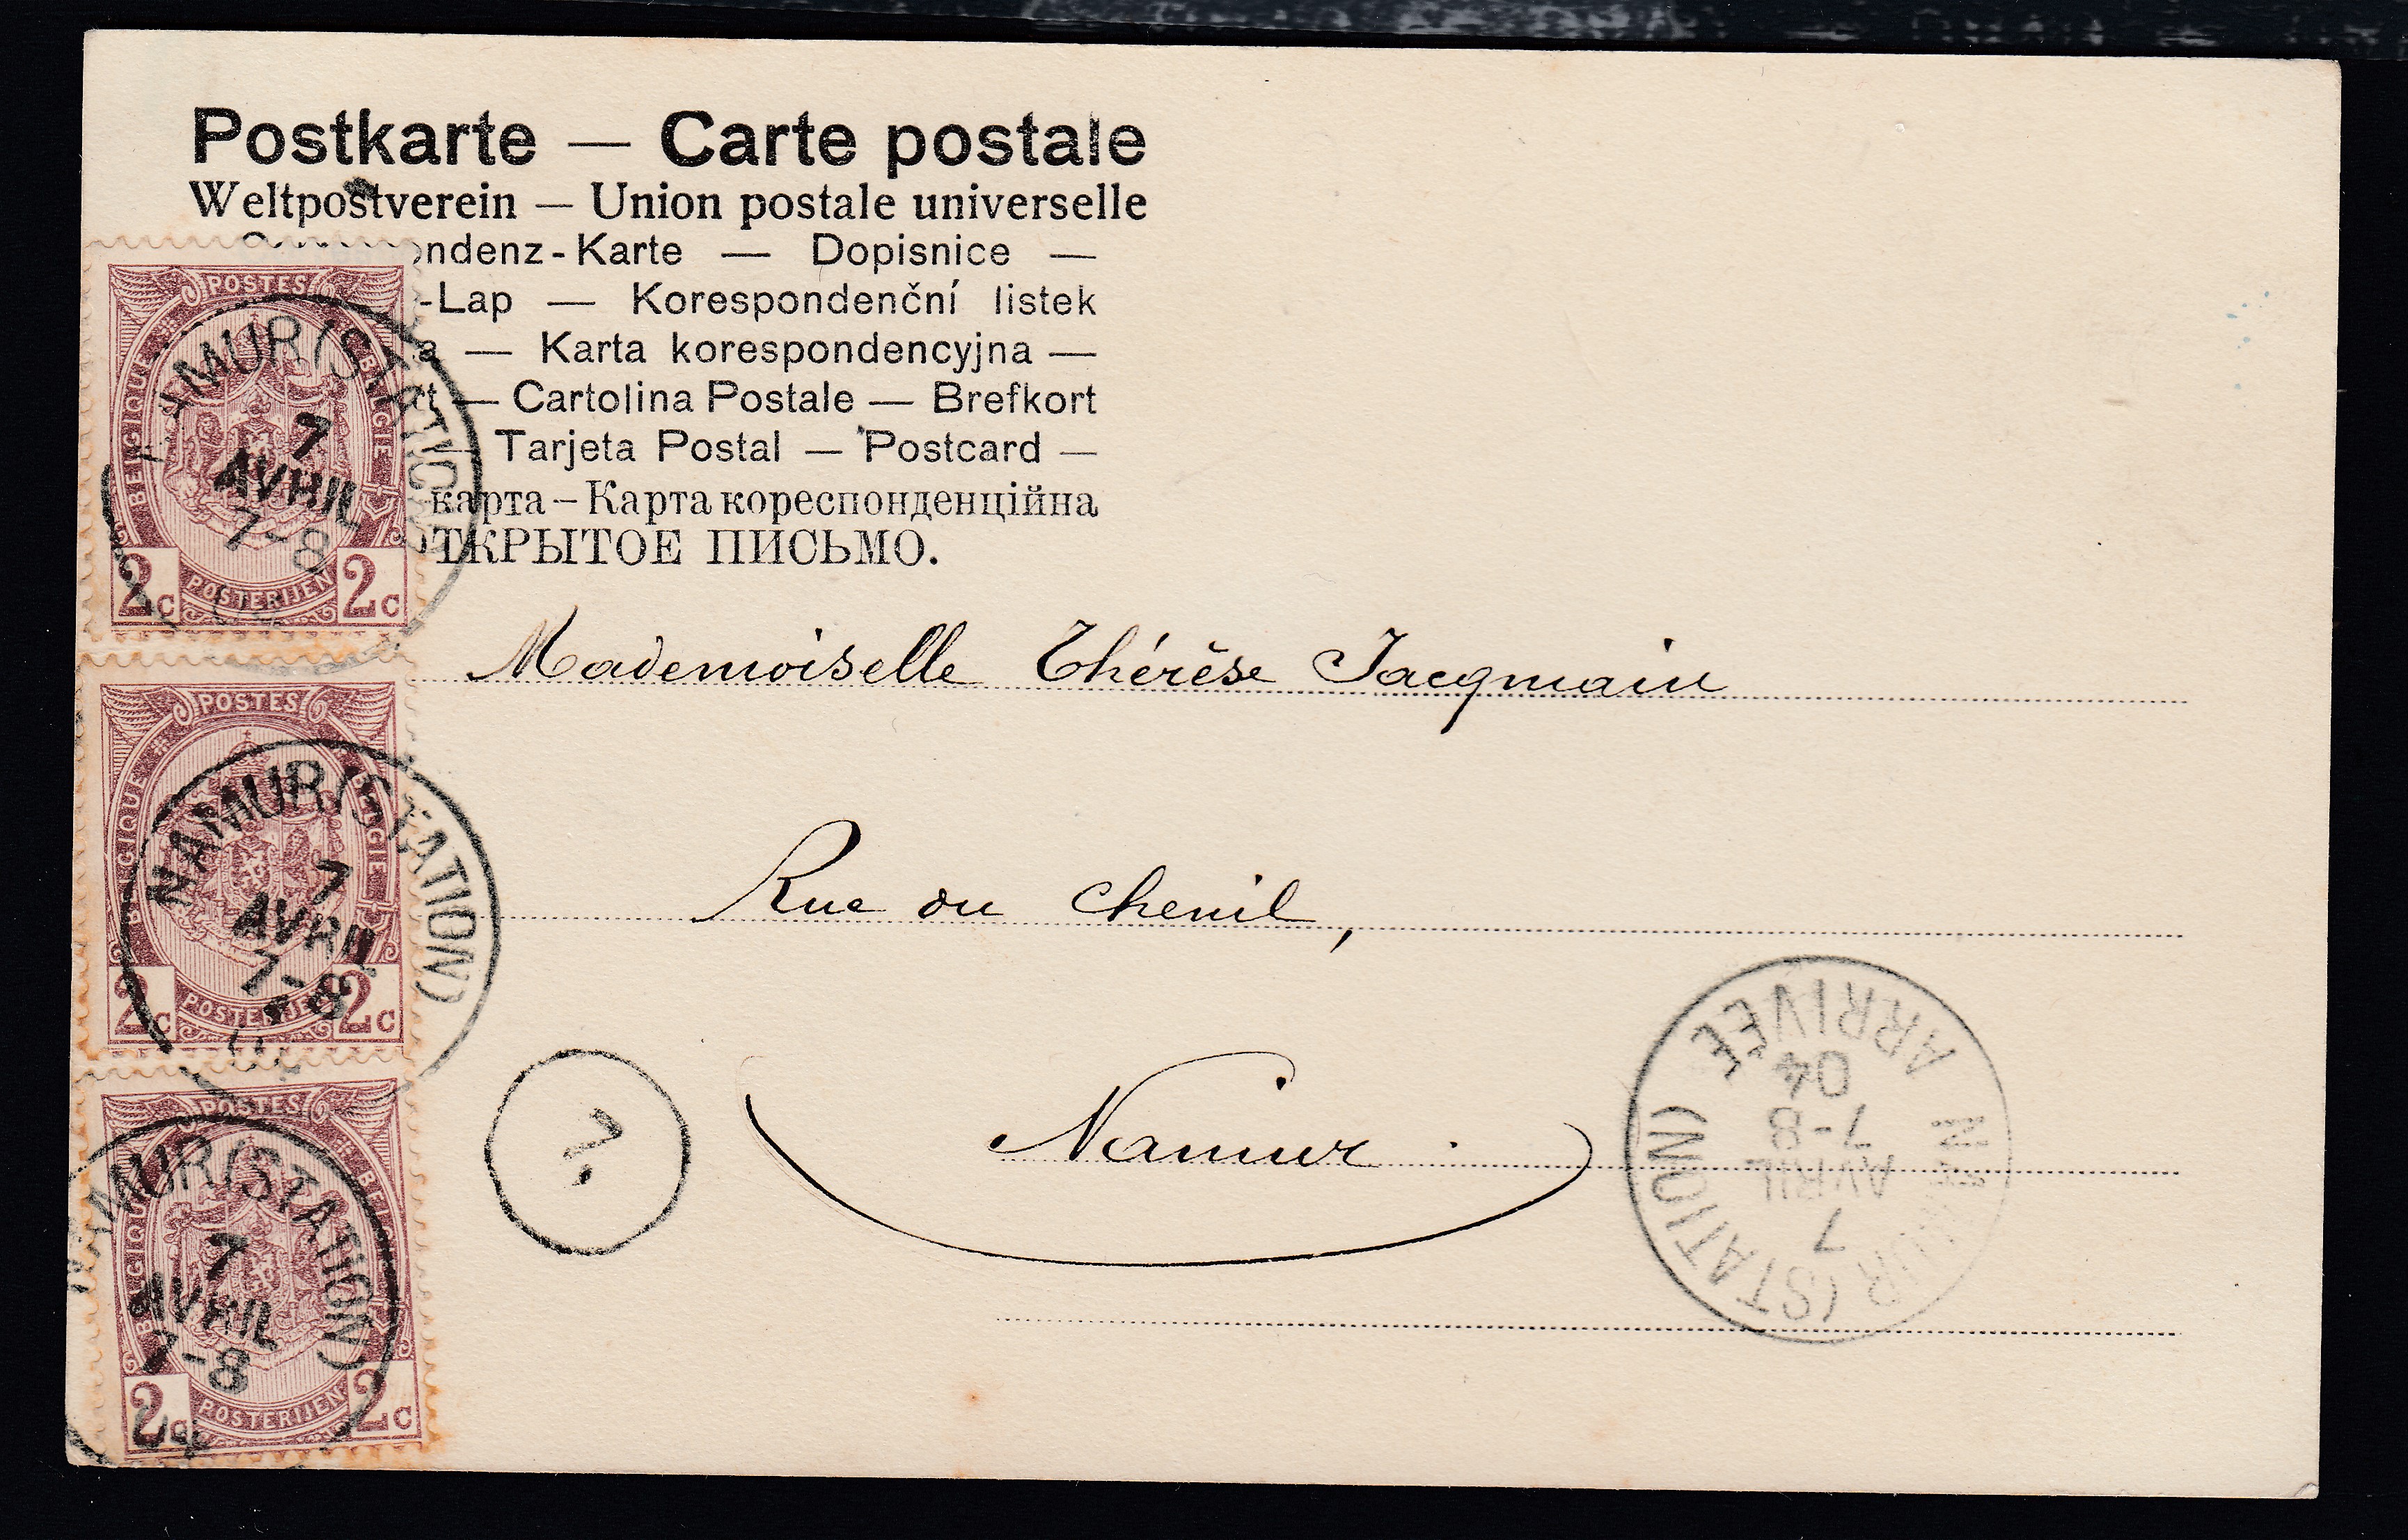 Postkarte — Carte postale
Weltpostverein — Union postale universelle
ndenz-Karte — Dopisnice —
-Lap — Korespondenční listek
a — Karta korespondencyjna —
rt — Cartolina Postale — Brefkort
— Tarjeta Postal — Postcard —
карта – Карта кореспонденційна
ТКРЫТОЕ ПИСЬМО.
POSTES
BELGIQUE
BELGIE
2c POSTERIJEN 2c
NAMUR (STATION)
7
AVRIL
7-8
Mademoiselle Thérèse Jacqmain
POSTES
BELGIQUE
BELGIE
2c POSTERIJEN 2c
NAMUR (STATION)
7
AVRIL
7-8
Rue du Chenil,
Namur.
7
POSTES
BELGIQUE
BELGIE
2c POSTERIJEN 2c
NAMUR (STATION)
7
AVRIL
7-8
04
NAMUR (STATION)
7
AVRIL
7-8
04
ARRIVÉE